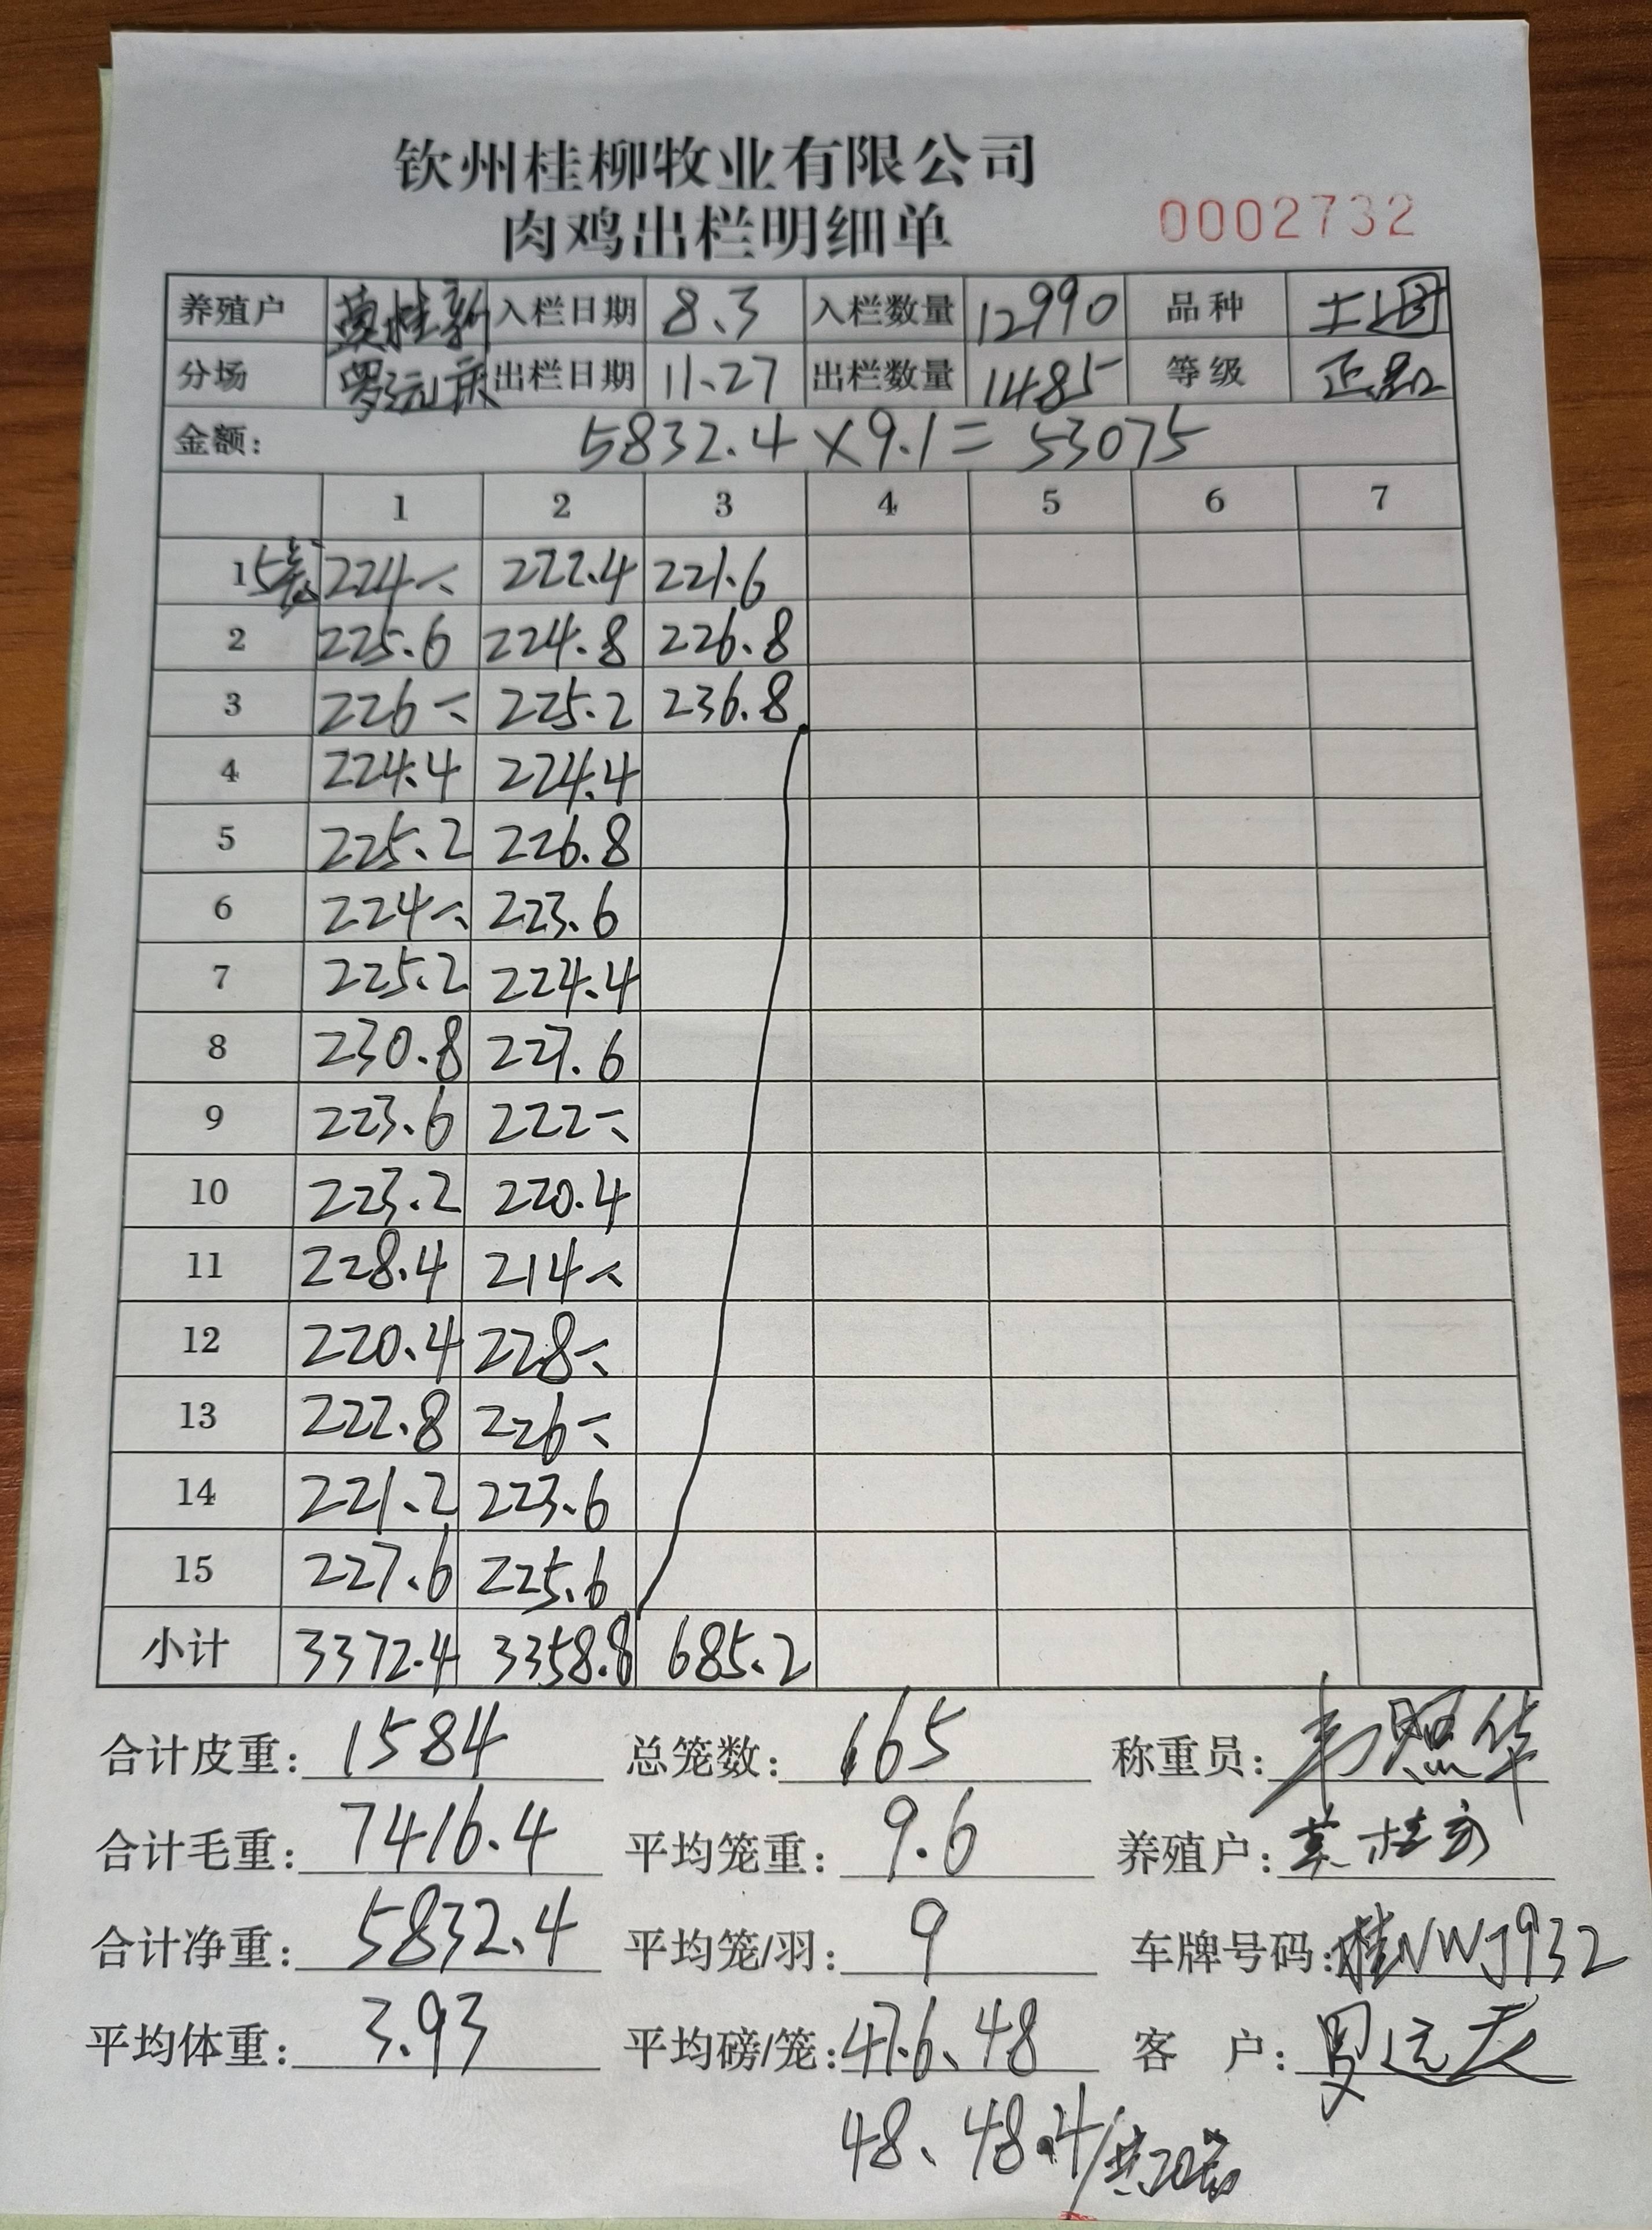 钦州桂柳牧业有限公司
肉鸡出栏明细单 0002732
养殖户 莫桂新 入栏日期 8.3 入栏数量 12990 品种 土
分场 罗远庆 出栏日期 11.27 出栏数量 1485 等级 正品
金额: 5832.4×9.1=53075
1 2 3 4 5 6 7
1 5 224 222.4 221.6
2 225.6 224.8 226.8
3 226 225.2 236.8
4 224.4 224.4
5 225.2 226.8
6 224 223.6
7 225.2 224.4
8 230.8 227.6
9 223.6 222
10 223.2 220.4
11 228.4 214
12 220.4 228
13 222.8 226
14 221.2 223.6
15 227.6 225.6
小计 3372.4 3358.8 685.2
合计皮重: 1584 总笼数: 165 称重员: 韦照华
合计毛重: 7416.4 平均笼重: 9.6 养殖户: 莫桂新
合计净重: 5832.4 平均笼/羽: 9 车牌号码: 桂NWJ932
平均体重: 3.93 平均磅/笼: 47.6、48 客 户: 罗远庆
48、48.4/共20